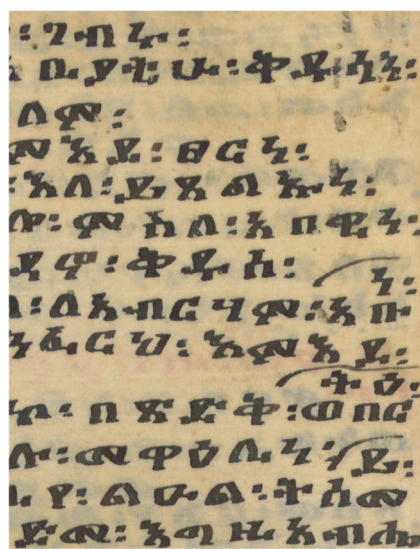 ፡ ገብሩ፡
ቢያቲሁ፡ ቅዱሳን፡
ለም፡
ምእደ፡ ፀርነ፡
፡ እለ፡ ይጸልኡነ፡
ምስለ፡ አበዊነ፡
ቅዱሰ፡
ነ፡
ለአብርሃም፡ አቡ
ንፍርህ፡ እምእደ፡
ትዕ፡
በጽድቅ፡ ወበር
መዋዕሊነ፡ ይ፡
ልዑል፡ ትሰመ
ድመ፡ እግዚአብሔ